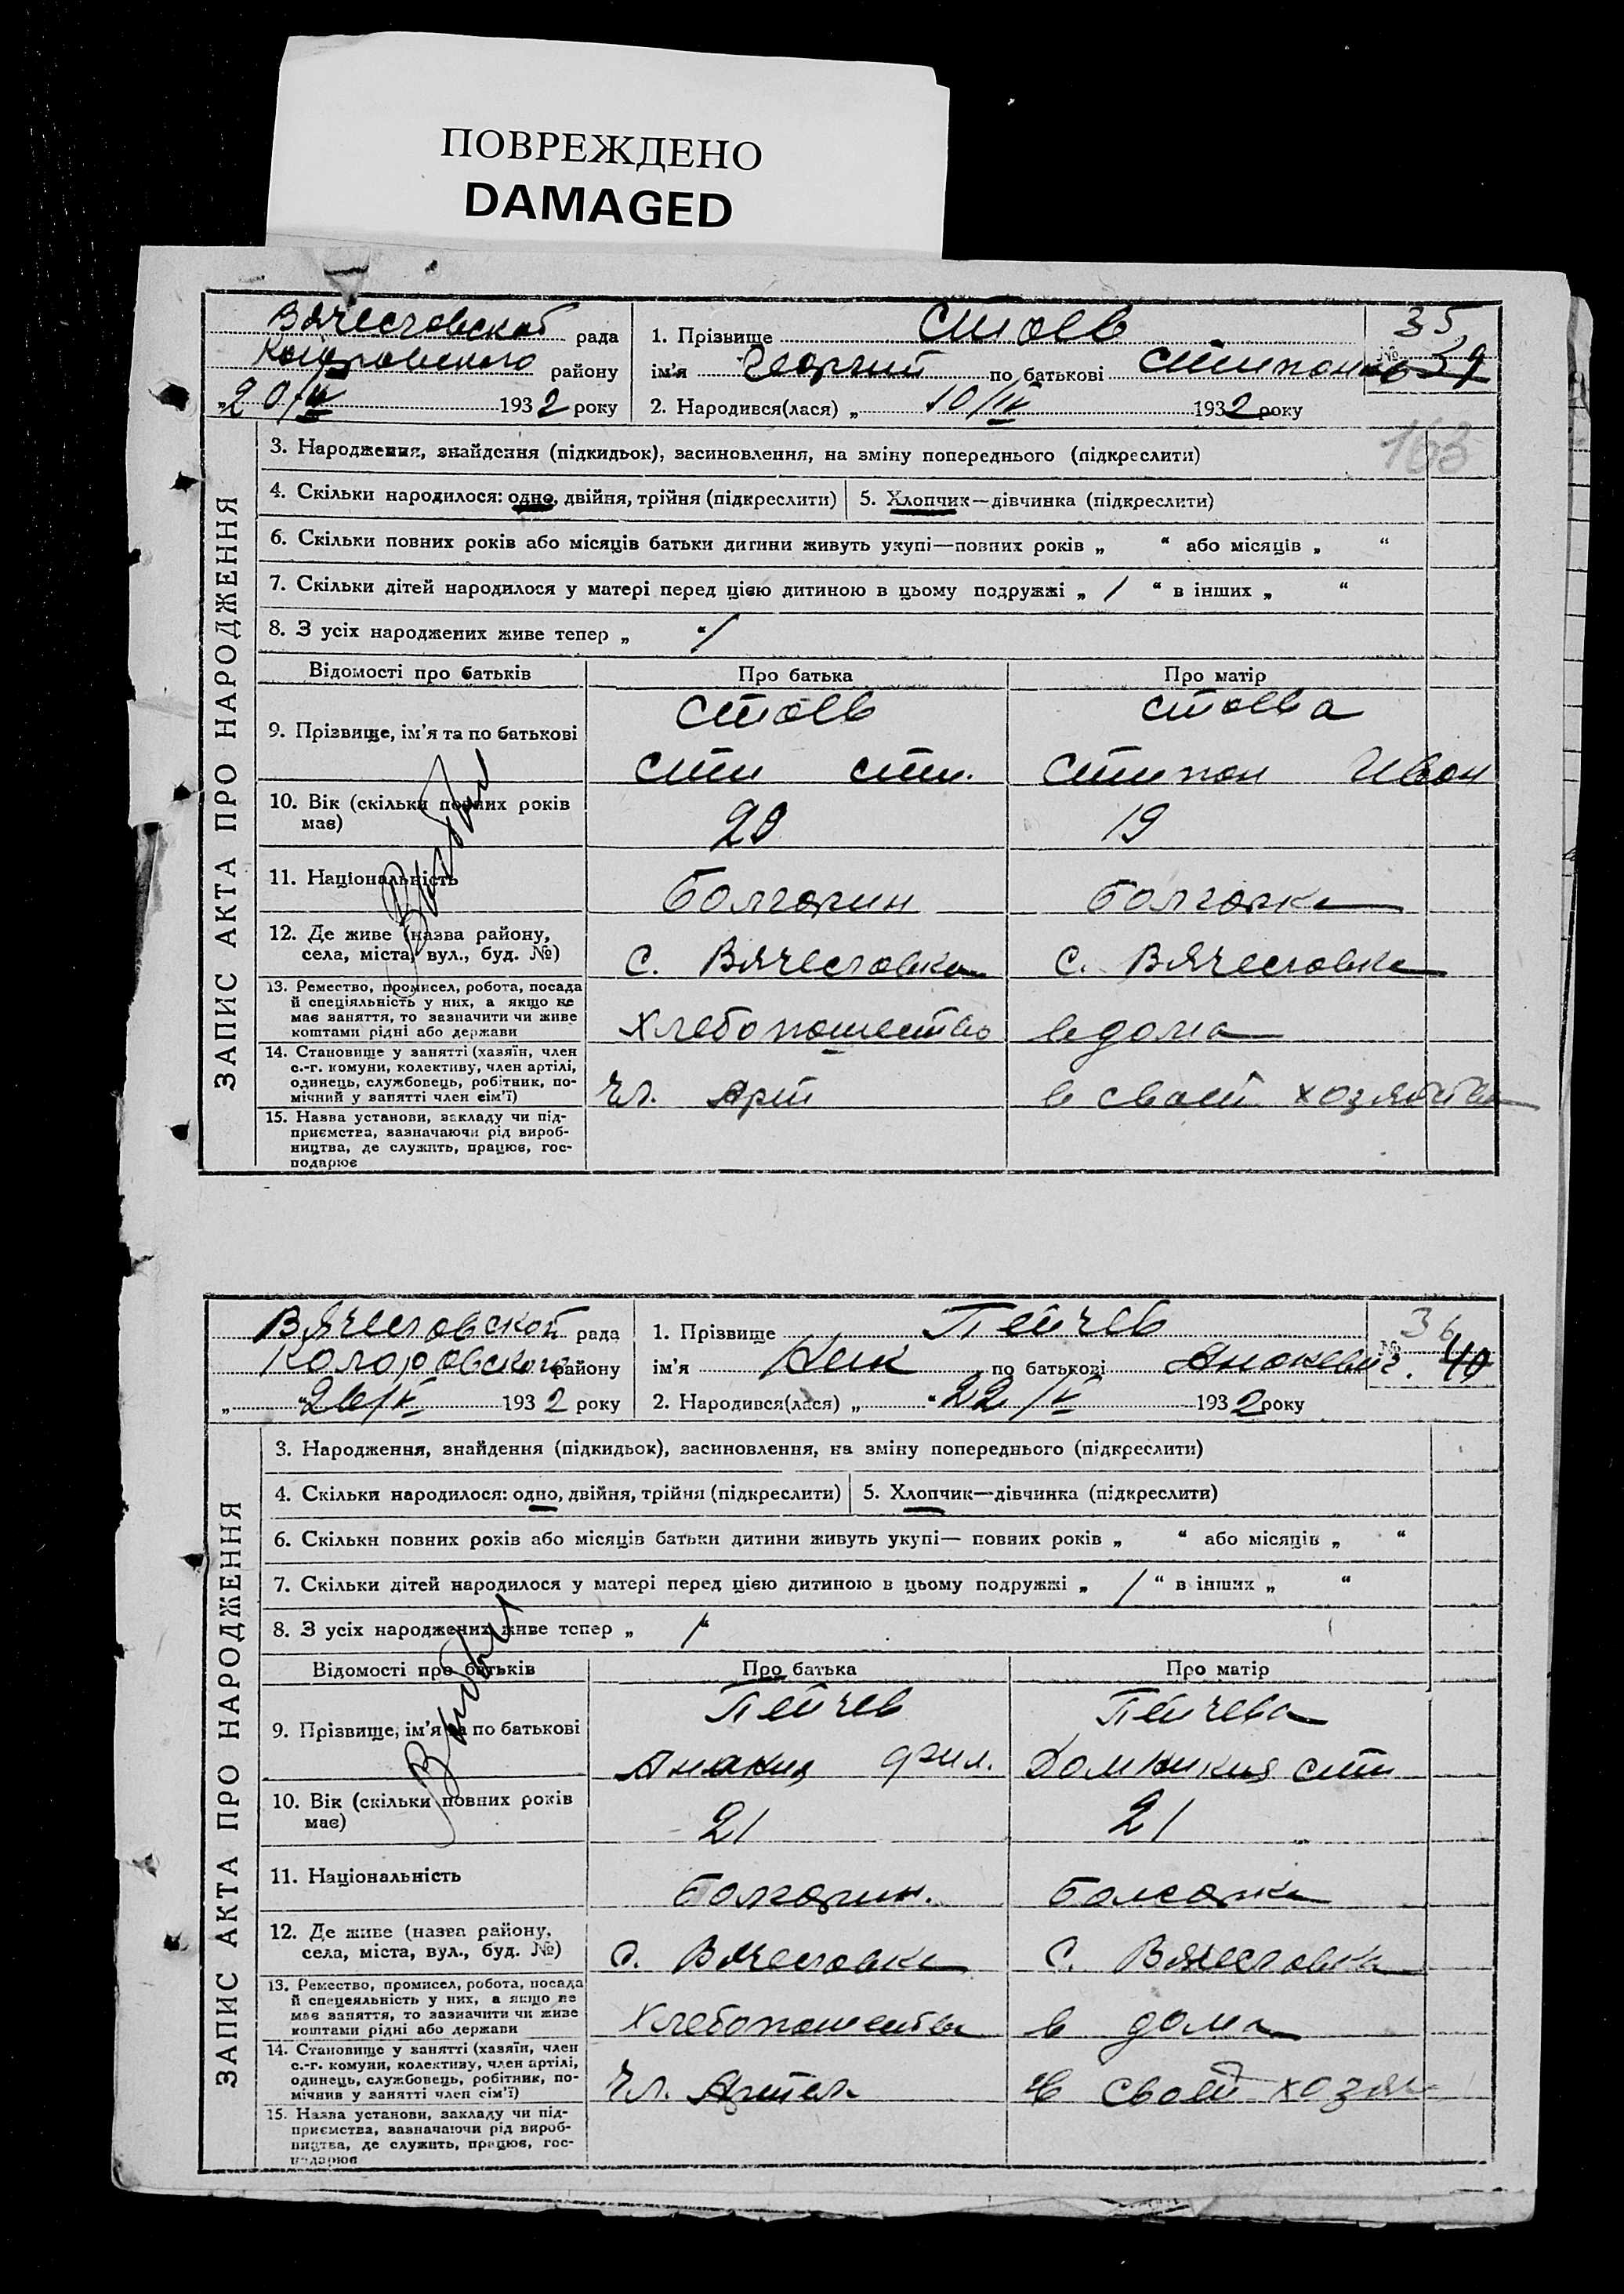 ПОВРЕЖДЕНО
DAMAGED
ЗАПИС АКТА ПРО НАРОДЖЕННЯ
Вячесловской рада
району
„20/IV 1932 року
1. Прізвище Стоев
ім'я Георгий по батькові
2. Народився(лася) „ 10/IV 1932 року
35
№ 39
163
3. Народження, знайдення (підкидьок), засиновлення, на зміну попереднього (підкреслити)
4. Скільки народилося: одно, двійня, трійня (підкреслити) 5. Хлопчик—дівчинка (підкреслити)
6. Скільки повних років або місяців батьки дитини живуть укупі—повних років „ “ або місяців „ “
7. Скільки дітей народилося у матері перед цією дитиною в цьому подружжі „ 1 “ в інших „ “
8. З усіх народжених живе тепер „ 1
Відомості про батьків Про батька Про матір
9. Прізвище, ім'я та по батькові Стоев Стоева
Сти Сти. Стипон Ивон
10. Вік (скільки повних років
має) 20 19
11. Національність Болгорин Болгорка
12. Де живе (назва району,
села, міста, вул., буд. №) С. Вячесловка С. Вячесловка
13. Ремество, промисел, робота, посада
й спеціяльність у них, а якщо не
має заняття, то зазначити чи живе
коштами рідні або держави Хлебопошество в дома
14. Становище у занятті (хазяїн, член
с.-г. комуни, колективу, член артілі,
одинець, службовець, робітник, по-
мічний у занятті член сім'ї) Чл. Арт в своей хозяйства
15. Назва установи, закладу чи під-
приємства, зазначаючи рід вироб-
ництва, де служить, працює, гос-
подарює
ЗАПИС АКТА ПРО НАРОДЖЕННЯ
Вячесловской рада
Коларовского району
„ 26/IV 1932 року
1. Прізвище Пейчев
ім'я по батькові
2. Народився(лася) „ 22/IV 1932 року
36
№ 40
3. Народження, знайдення (підкидьок), засиновлення, на зміну попереднього (підкреслити)
4. Скільки народилося: одно, двійня, трійня (підкреслити) 5. Хлопчик—дівчинка (підкреслити)
6. Скільки повних років або місяців батьки дитини живуть укупі— повних років „ “ або місяців „ “
7. Скільки дітей народилося у матері перед цією дитиною в цьому подружжі „ 1 “ в інших „ “
8. З усіх народжених живе тепер „ 1 “
Відомості про батьків Про батька Про матір
9. Прізвище, ім'я та по батькові Пейчев Пейчева
Фил. Домникия Сти
10. Вік (скільки повних років
має) 21 21
11. Національність Болгорин. Болгорка
12. Де живе (назва району,
села, міста, вул., буд. №) С. Вячесловка С. Вячесловка
13. Ремество, промисел, робота, посада
й спецеяльність у них, а якщо не
має заняття, то зазначити чи живе
коштами рідні або держави Хлебопошества в дома
14. Становище у занятті (хазяїн, член
с.-г. комуни, колективу, член артілі,
одинець, службовець, робітник, по-
мічний у занятті член сім'ї) Чл. Артел в своей хозяй
15. Назва установи, закладу чи під-
приємства, зазначаючи рід вироб-
ництва, де служить, працює, гос-
подарює